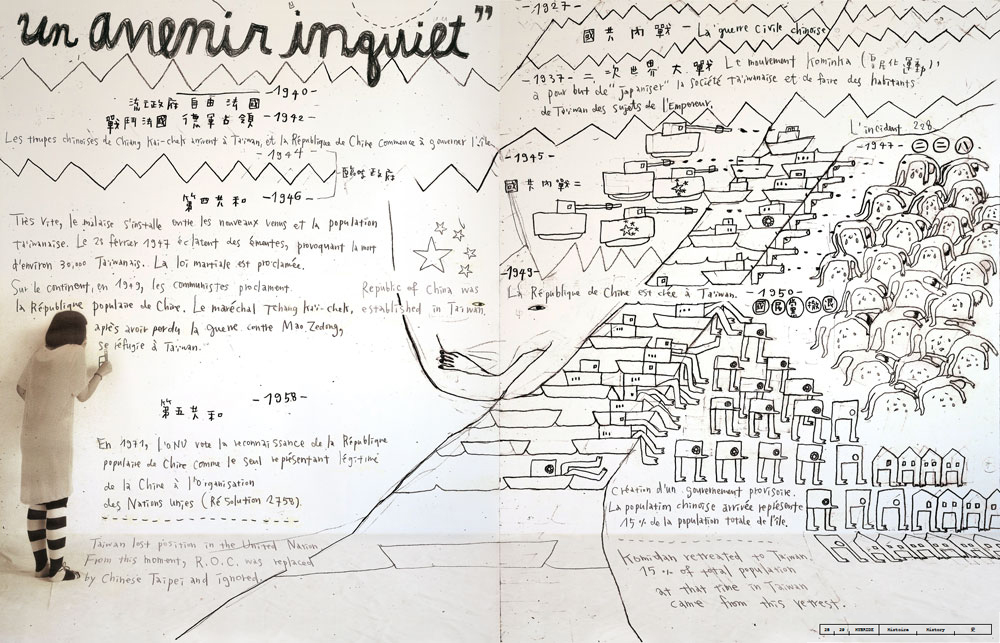 un avenir inquiet"
-1940-
流亡政府 自由法國
戰鬥法國 德軍占領 -1942-
Les troupes chinoises de Chiang Kai-chek arrivent à Taiwan, et la République de Chine commence à gouverner l'île.
-1944-
臨時政府
第四共和 -1946-
Très vite, le malaise s'installe entre les nouveaux venus et la population
taiwanaise. Le 28 février 1947 éclatent des émeutes, provoquant la mort
d'environ 30,000 Taiwanais. La loi martiale est proclamée.
Sur le continent, en 1949, les communistes proclament
la République populaire de Chine. Le maréchal Tchang Kaï-chek,
après avoir perdu la guerre contre Mao Zedong,
se réfugie à Taiwan.
Republic of China was
established in Taiwan.
第五共和 -1958-
En 1971, l'ONU vote la reconnaissance de la République
populaire de Chine comme le seul représentant légitime
de la Chine à l'Organisation
des Nations unies (Résolution 2758).
Taiwan lost position in the United Nation
From this moment, R.O.C. was replaced
by Chinese Taipei and ignored.
-1927-
國共內戰 - La guerre civile chinoise
-1937- 二次世界大戰 Le mouvement Kominka (皇民化運動),
a pour but de "japaniser" la société taiwanaise et de faire des habitants
de Taiwan des sujets de l'Empereur.
L'incident 228
-1947- 二二八
-1945-
國共內戰二
-1949-
La République de Chine est créée à Taiwan. -1950-
國民黨撤退
Création d'un gouvernement provisoire.
La population chinoise arrivée représente
15% de la population totale de l'île.
Komindan retreated to Taiwan.
15% of total population
at that time in Taiwan
came from this retreat.
28 29 HYBRIDE Histoire History 史